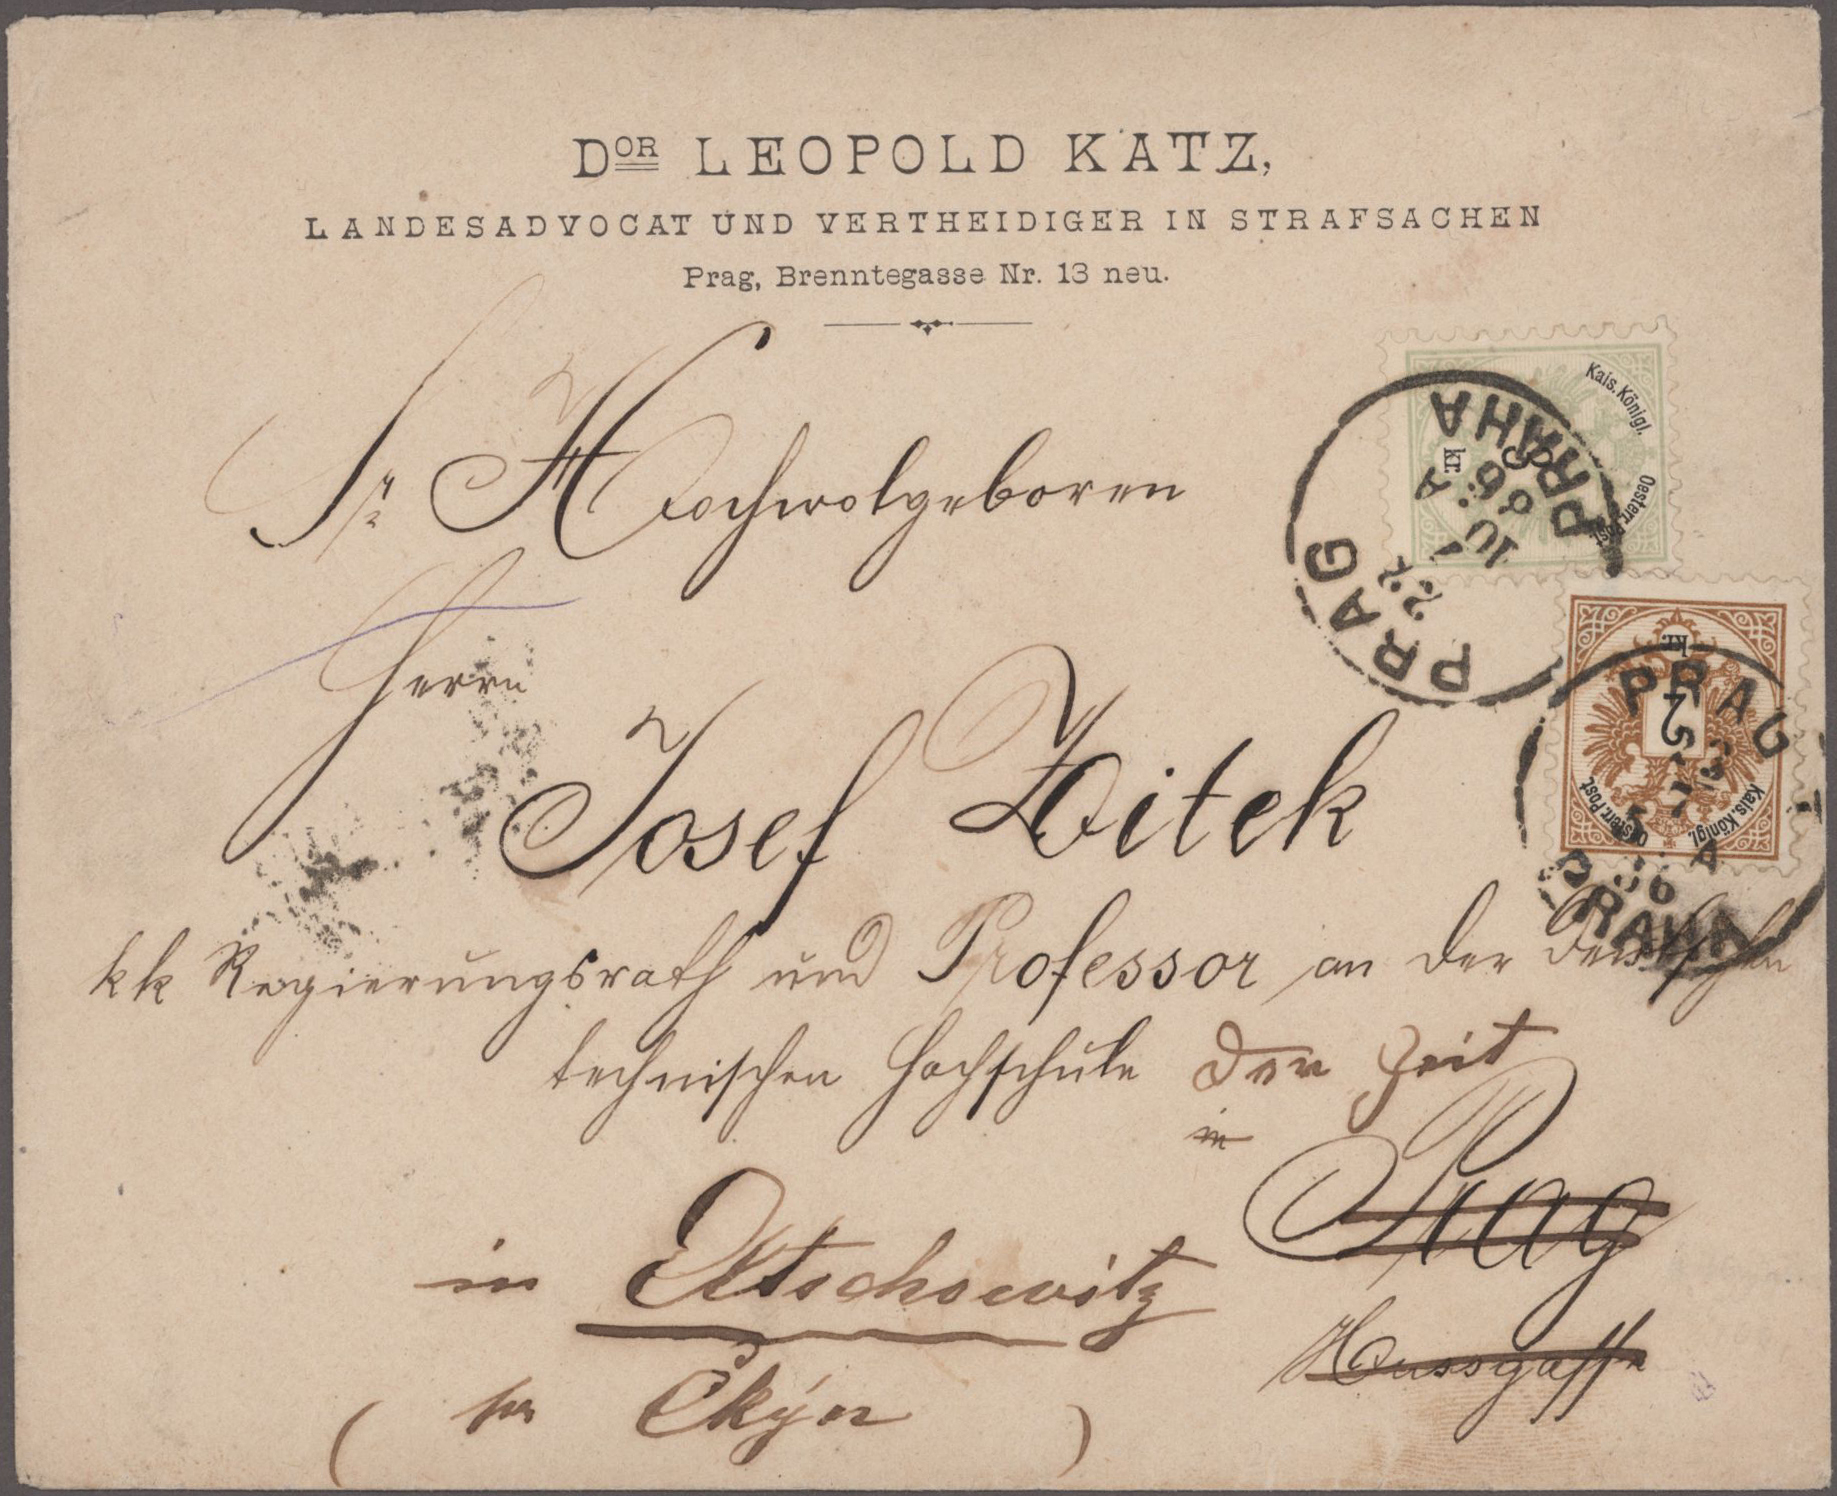 Dor LEOPOLD KATZ,
LANDESADVOCAT UND VERTHEIDIGER IN STRAFSACHEN
Prag, Brenntegasse Nr. 13 neu.
Sr Hochwolgeboren
Herrn
Josef Zitek
kk Regierungsrath und Professor an der deutschen
technischen Hochschule der Zeit
in
Prag
in Eltschowitz
Hussgasse
( per Čkýn )
Kais. Königl. Oesterr. Post
kr.
PRAG PRAHA
86
kr.
2
Kais. Königl. Oesterr. Post
PRAG PRAHA
86